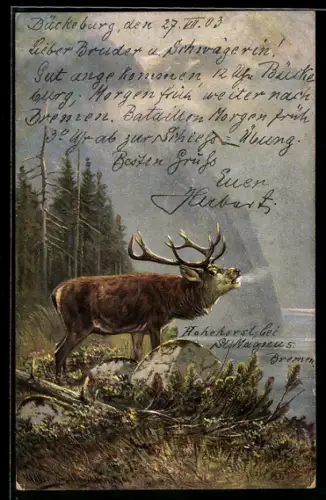 Bückeburg, den 27. VII. 03
Lieber Bruder u. Schwägerin!
Gut angekomen 12 Uhr Bücke
burg, Morgen früh weiter nach
Bremen. Bataillon Morgen früh
3° Ur ab zur Schiess-Übung.
Besten Gruss
Euer
Herbert.
Hohehorst bei
St. Magnus
Bremen